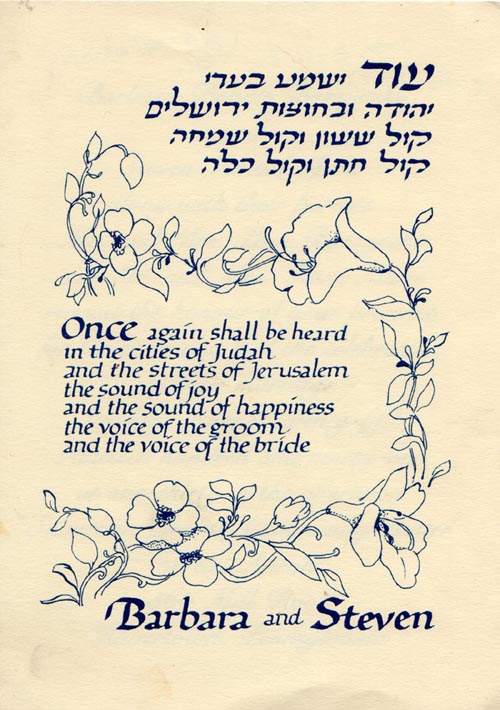 עוד ישמע בערי
יהודה ובחוצות ירושלים
קול ששון וקול שמחה
קול חתן וקול כלה
Once again shall be heard
in the cities of Judah
and the streets of Jerusalem
the sound of joy
and the sound of happiness
the voice of the groom
and the voice of the bride
Barbara and Steven